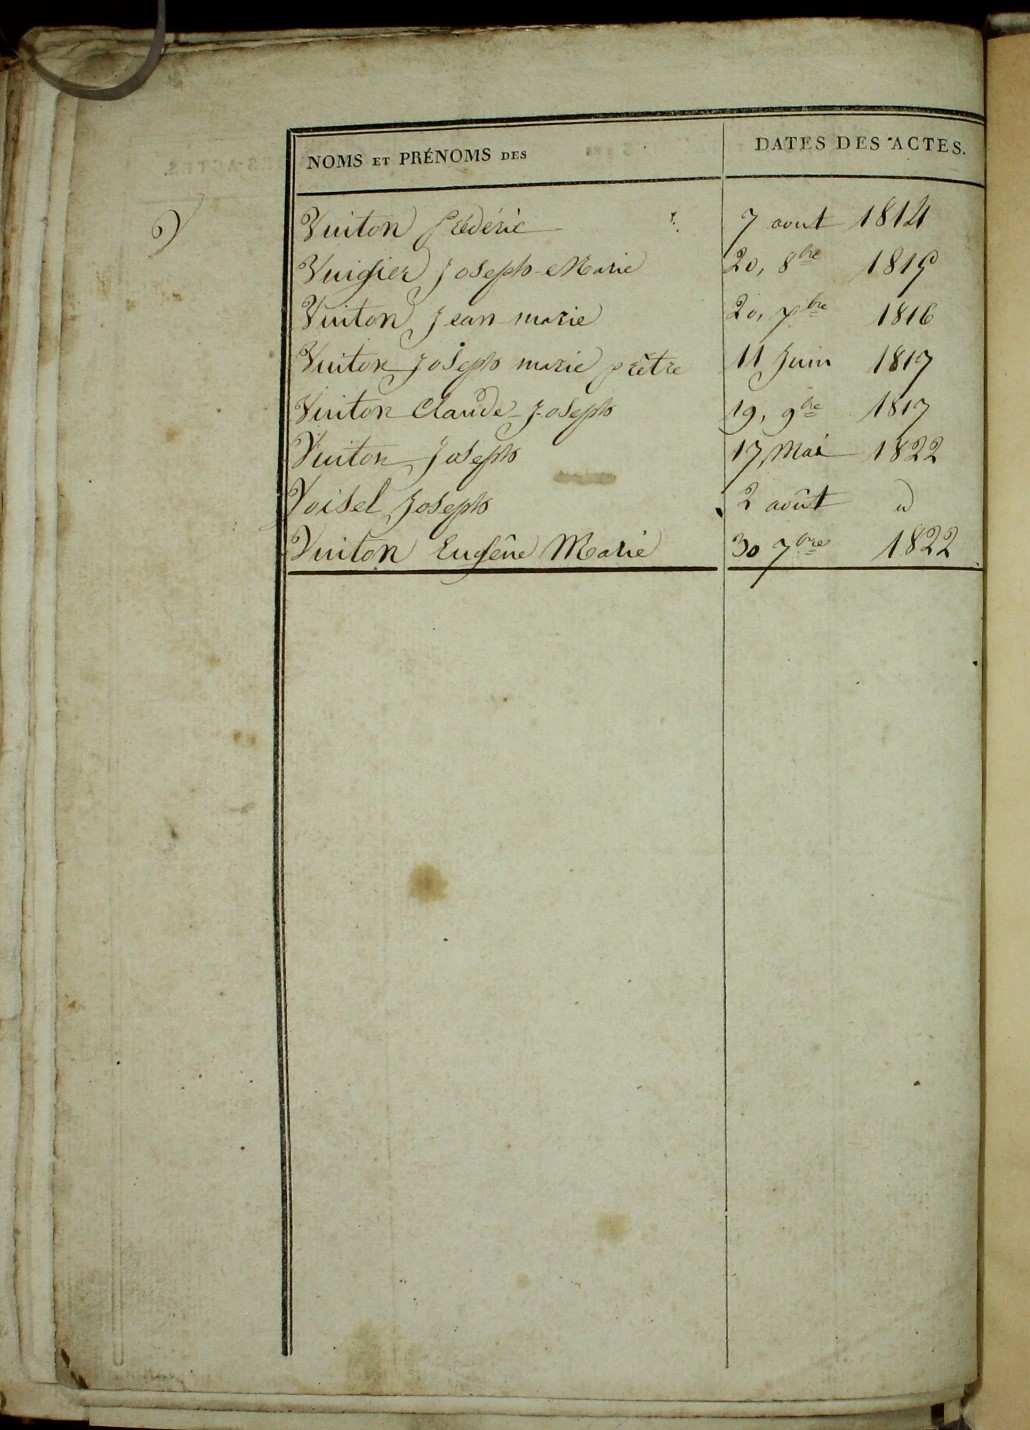 NOMS ET PRÉNOMS DES DATES DES ACTES.
V
Vuiton frédéric 7 aout 1814
Joseph-Marie 20, 8bre 1815
Vuiton Jean marie 20, 7bre 1816
Vuiton Joseph marie prêtre 11 Juin 1817
Vuiton Claude-Joseph 19, 9bre 1817
Vuiton Joseph 17 Mai 1822
Voisel Joseph 2 août id
Vuiton Eugêne Marie 30 7bre 1822